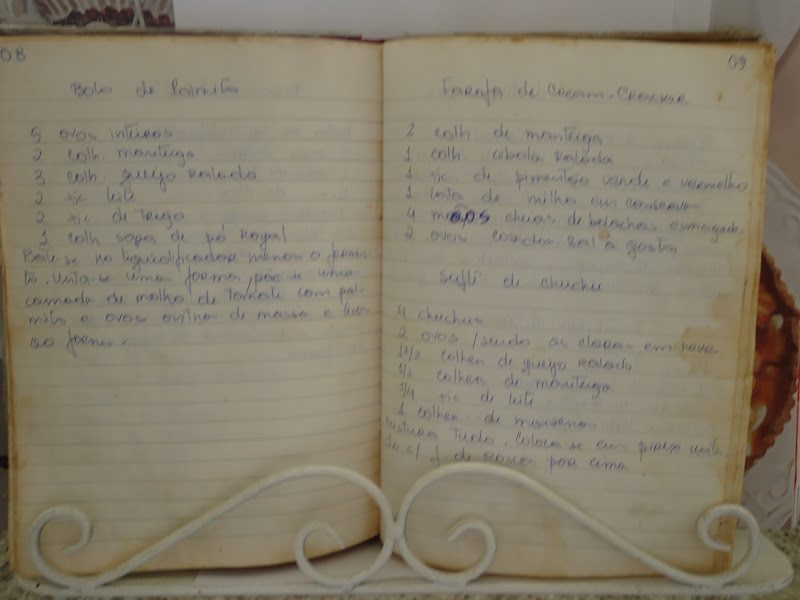 08
Bolo de Palmito
5 ovos inteiros
2 colh. manteiga
3 colh. queijo ralado
2 xic leite
2 xic. de trigo
1 colh sopa de pó Royal
Bate-se no liquidificador menos o palmi-
to, unta-se uma forma, põe-se uma
camada de molho de tomate com pal-
mito e ovos de massa e leva
ao forno.
09
Farofa de Cream-Cracker
2 colh de manteiga
1 colh cebola ralada
1 xic. de pimentão verde e vermelho
1 lata de milho em conserva
4 mãos cheias de bolachas
2 ovos cozidos, sal a gosto
Suflê de chuchu
4 chuchus
2 ovos /sendo as claras em neve
1 1/2 colher de queijo ralado
1/2 colher de manteiga
1/4 xic de leite
1 colher de maisena
Mistura tudo. Coloca-se em pirex unta-
do c/ f. de rosca por cima